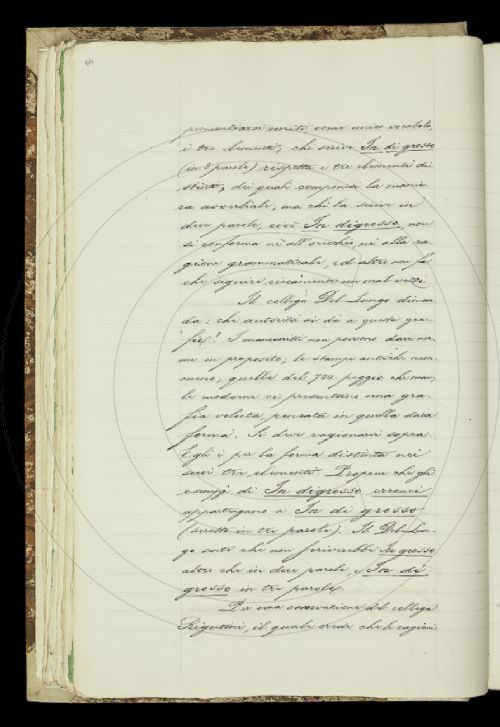 64
pronunziarsi uniti, come unico vocabolo,
i tre elementi; chi scrive In di grosso
(in 3 parole) rispetta i tre elementi di-
stinti, dei quali componesi la manie-
ra avverbiale; ma chi la scrive in
due parole, cioè In digrosso, non
si conforma nè all'orecchio, nè alla ra-
gione grammaticale, ed altro non fa
che seguire un mal vezzo.
Il collega Del Lungo diman-
da: che autorità si dà a queste gra-
fie? I manoscritti non possono dare nor-
me in proposito; le stampe antiche nem-
meno; quelle del 700 peggio che mai;
le moderne ci presentano una gra-
fia voluta, pensata in quella data
forma. Si deve ragionarci sopra.
Egli è per la forma distinta nei
suoi tre elementi. Propone che gli
esempj di In digrosso erronei
appartengano a In di grosso
(scritto in tre parole). Il Del Lun-
go nota che non scriverebbe In grosso
altro che in due parole, In di
grosso in tre parole.
Per una osservazione del collega
Rigutini, il quale crede che le ragioni